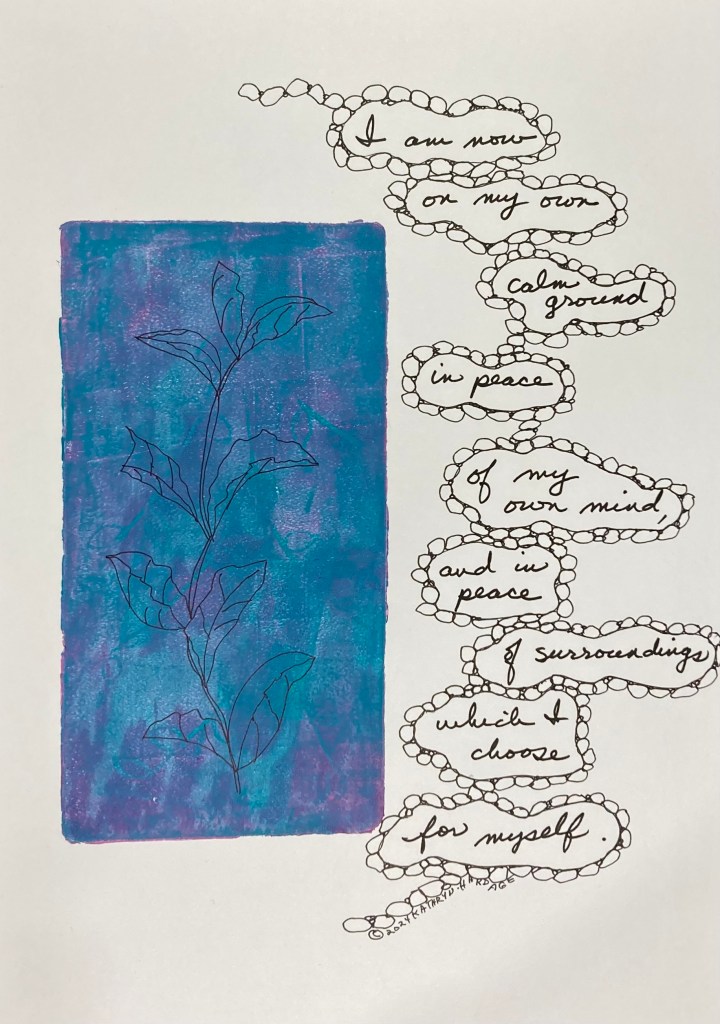 I am now
on my own
calm
ground
in peace
of my
own mind,
and in
peace
of surroundings
which I
choose
for myself.
© 2024 KATHRYN HARDAGE